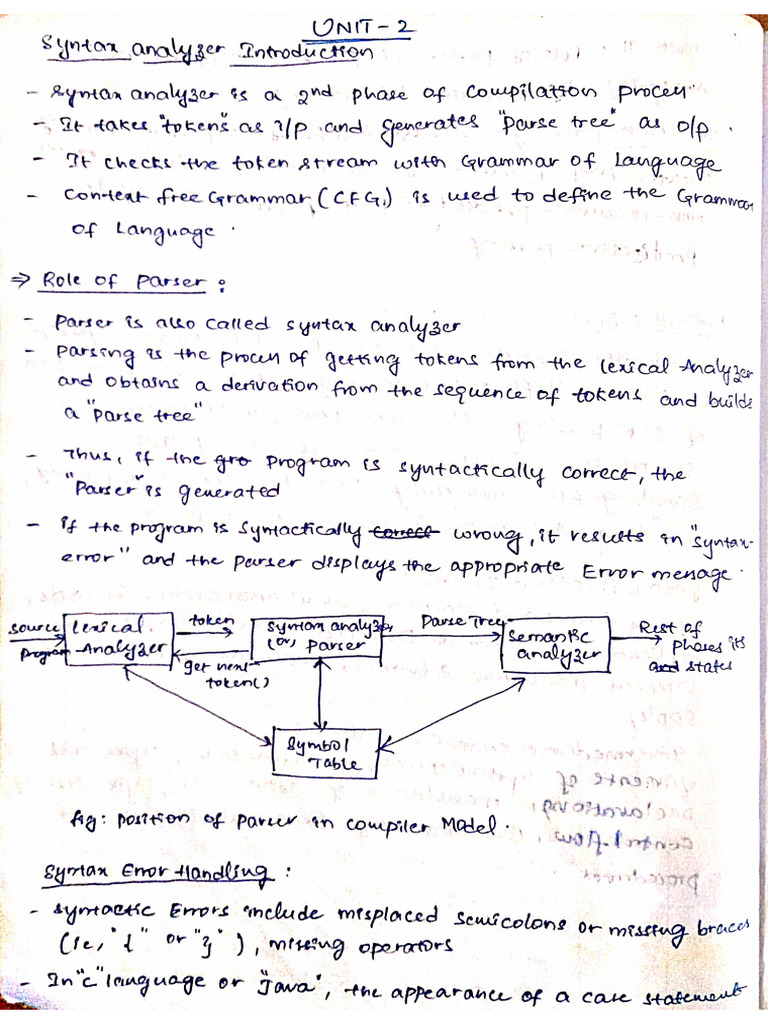 UNIT-2
Syntax analyzer Introduction
- Syntax analyzer is a 2nd phase of compilation process
- It takes "tokens" as I/p and generates "parse tree" as o/p.
- It checks the token stream with Grammar of Language
- Context free Grammar (CFG) is used to define the Grammar
of Language.
⇒ Role of Parser:
- Parser is also called syntax analyzer
- Parsing is the process of getting tokens from the lexical Analyzer
and obtains a derivation from the sequence of tokens and builds
a "parse tree"
- Thus, if the gro program is syntactically correct, the
"Parser" is generated
- if the program is syntactically correct wrong, it results in "syntax-
error" and the parser displays the appropriate Error message.
source program
Lexical Analyzer
token
get next token()
syntax analyzer (or) Parser
Parse Tree
Semantic analyzer
Rest of phases its and states
Symbol Table
fig: position of parser in compiler Model.
Syntax Error Handling:
- Syntactic Errors include misplaced semicolons or missing braces
(ie, "{" or "}"), missing operators
- In "C" language or "Java", the appearance of a case statement